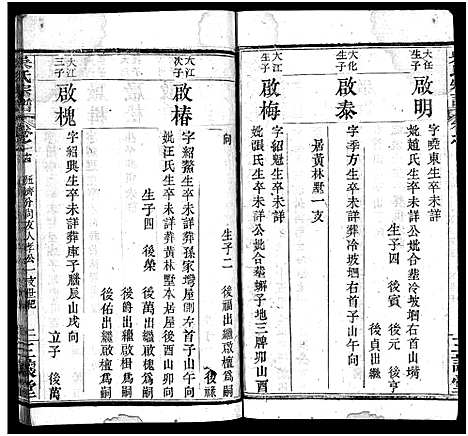 大任
生子
啟明
字曉東生卒未詳
妣趙氏生卒未詳公妣合塟冷坡堋右首山塝
生子四 後賓 後元 後亨
後貞出繼
大化
生子
啟泰
字季方生卒未詳葬冷坡堋右首子山午向
居黃林墅一支
大江
生子
啟梅
字紹魁生卒未詳
妣張氏生卒未詳公妣合塟獬子地三牌卯山酉
向
生子二 後福出繼啟檀爲嗣
後祿
大江
次子
啟椿
字紹鰲生卒未詳葬孫家灣屋側左首子山午向
妣汪氏生卒未詳葬黃林墅本居屋後酉山卯向
生子四 後榮 後萬出繼啟槐爲嗣
後爵出繼啟檀爲嗣
後佑出繼啟檀爲嗣
大江
三子
啟槐
字紹興生卒未詳葬庫子騰辰山戌向
立子 後萬
吳氏宗譜
三讓堂